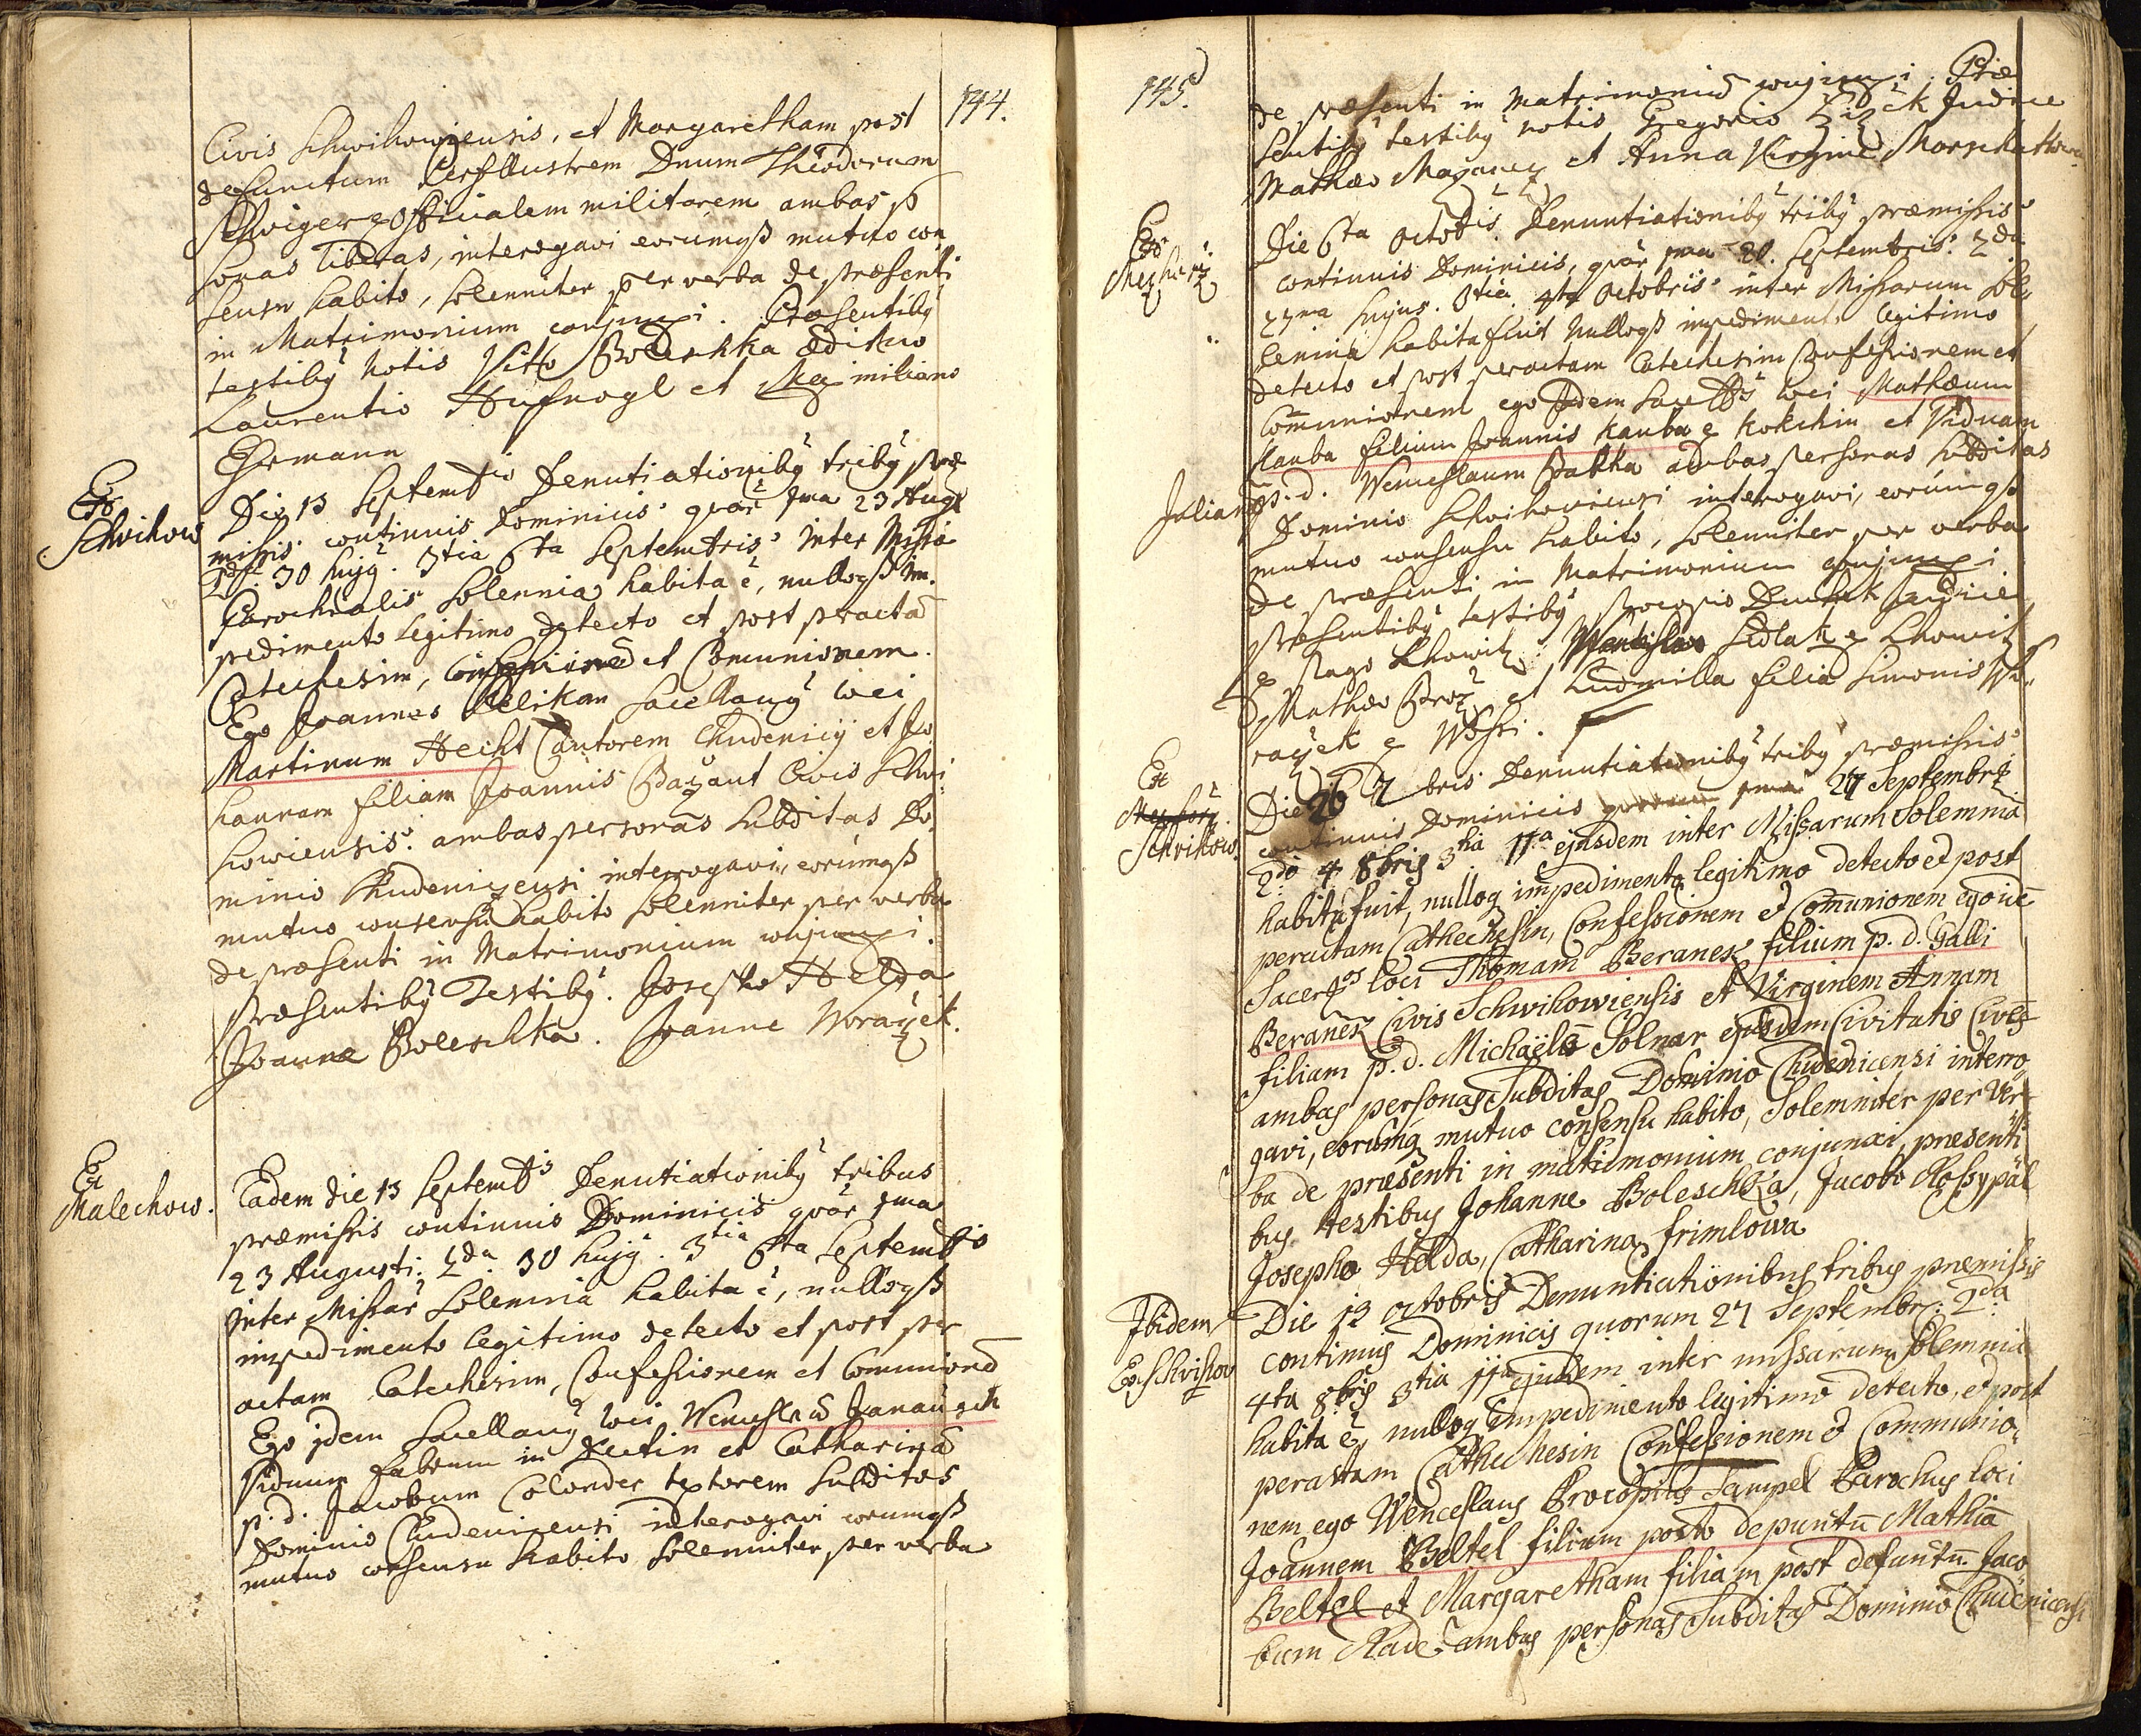 144.
Civis Schwihowiensis, et Margaretham post
defunctum Perillustrem Dnum Theodorum
Schwiger Officialem militarem ambas p
sonas liberas, interogavi eorumqß mutuo con
sensu habito, solenniter per verba de præsenti
in Matrimonium conjunxi. Præsentibȳ
testibȳ notis Vitto Boleschka ædituo
Laurentio Hufnogl et Maximiliano
Ehrmann
Ex
Schwihow
Die 13 Septembris Denutiationibȳ tribȳ præ
missis continuis Dominicis quar 1ma 23 Aug
2da 30 hujȳ. 3tia 6ta Septembris inter Missæ
Parochialis solennia habita ē, nulloqß im
pedimento legitimo detecto et post peractā
Catechesim, Confessionē et Comunionem.
Ego Joannes Pelikan Sacellanȳ loci
Martinum Hecht Cantorem Chudenicij et Jo
hannam filiam Joannis Bazant Civis Schwi
howiensis. ambas personas subditas Do
minio Chudenicensi interrogavi, eorumqß
mutuo consensu habito solenniter per verba
de præsenti in Matrimonium conjunxi.
Præsentibȳ Testibȳ. Josepho Helda
Joanne Boleschka. Joanne Worazek.
Ex
Malechow.
Eadem die 13 Septembris Denutiationibȳ tribus
præmissis continuis Dominicis quar 1ma
23 Augusti: 2da 30 hujȳ. 3tia 6ta Septembris
inter Missar solennia habita ē, nulloqß
impedimento legitimo detecto et post per
actam Catechesim, Confessionem et Communionē
Ego idem Sacellanȳ loci Wenceslaū Janausch
Viduum fabrum in Dectin et Catharinā
p. d. Jacobum Colonder textorem subditas
Dominio Chudenicensi interogavi eorumqß
mutuo consensu habito solenniter per verba
145.
de præsenti in Matrimoniū conjunxi. Præ
sentibȳ testibȳ notis Gregorio Judice
Mathæo et Anna Virgine
Ex
Die 6ta Octobris Denuntiationibȳ tribȳ præmissis
continuis Dominicis, quar 1ma 20. Septembris. 2da
27ma hujus. 3tia 4ta Octobris inter Missarum sol
lennia habita fuit Nulloqß impedimento legitimo
detecto et post peractam Catechesim Confessionem et
Comunionem ego idem Sacellanȳ loci Mathæum
Kauba filium Joannis Kauba e Kokschin et Viduam
Julianā p. d. Wenceslaum Babka ambas personas subditas
Dominio Schwihowiensi interogavi, eorumqß
mutuo consensu habito, solenniter per verba
de præsenti in Matrimonium conjunxi
præsentibȳ testibȳ Procopio Judice
e pago Lhowitz. Wenceslao Sedlak e Lhowitz
Mathæo Broz et Ludmilla filia Simonis Wo
razek e
Ex
Schvihow.
Die 26 7bris Denuntiationibȳ tribȳ præmissis
continuis Dominicis quarum 1ma 27 Septembris
2do 4 8bris 3tia 11a ejusdem inter Missarum Solemnia
habita fuit, nulloq impedimento legitimo detecto et post
peractam Cathechesin, Confessionem et Comunionem ego idē
Sacerdos loci Thomam Beranek filium p. d. Galli
Beranek Civis Schwihowiensis et Virginem Annam
filiam p. d. Michaëlis Solnar ejusdem Civitatis Civis
ambas personas Subditas Dominio Chudenicensi interro
gavi, eorumq mutuo consensu habito, Solemniter per ver
ba de præsenti in matrimonium conjunxi, præsenti
bus testibus Johanne Boleschka, Jacobo Rossypal
Josepho Helda, Catharina frimlowa
Ibidem
Ex Schvihov
Die 13 octobris Denuntiationibus tribus præmissis
continuis Dominicis quorum 27 Septembr. 2da
4ta 8bris 3tia 11a ejusdem inter missarum solemnia
habita ē, nulloq impedimento legitimo detecto, et post
peractam Cathechesin Confessionem et Communio
nem ego Wenceslaus Procopius Sampel Parochus loci
Joannem Beltel filium post depunctū Mathiā
Beltel et Margaretham filiam post defunctū Jaco
bum Rade ambas personas Subditas Dominio Chudenicensi